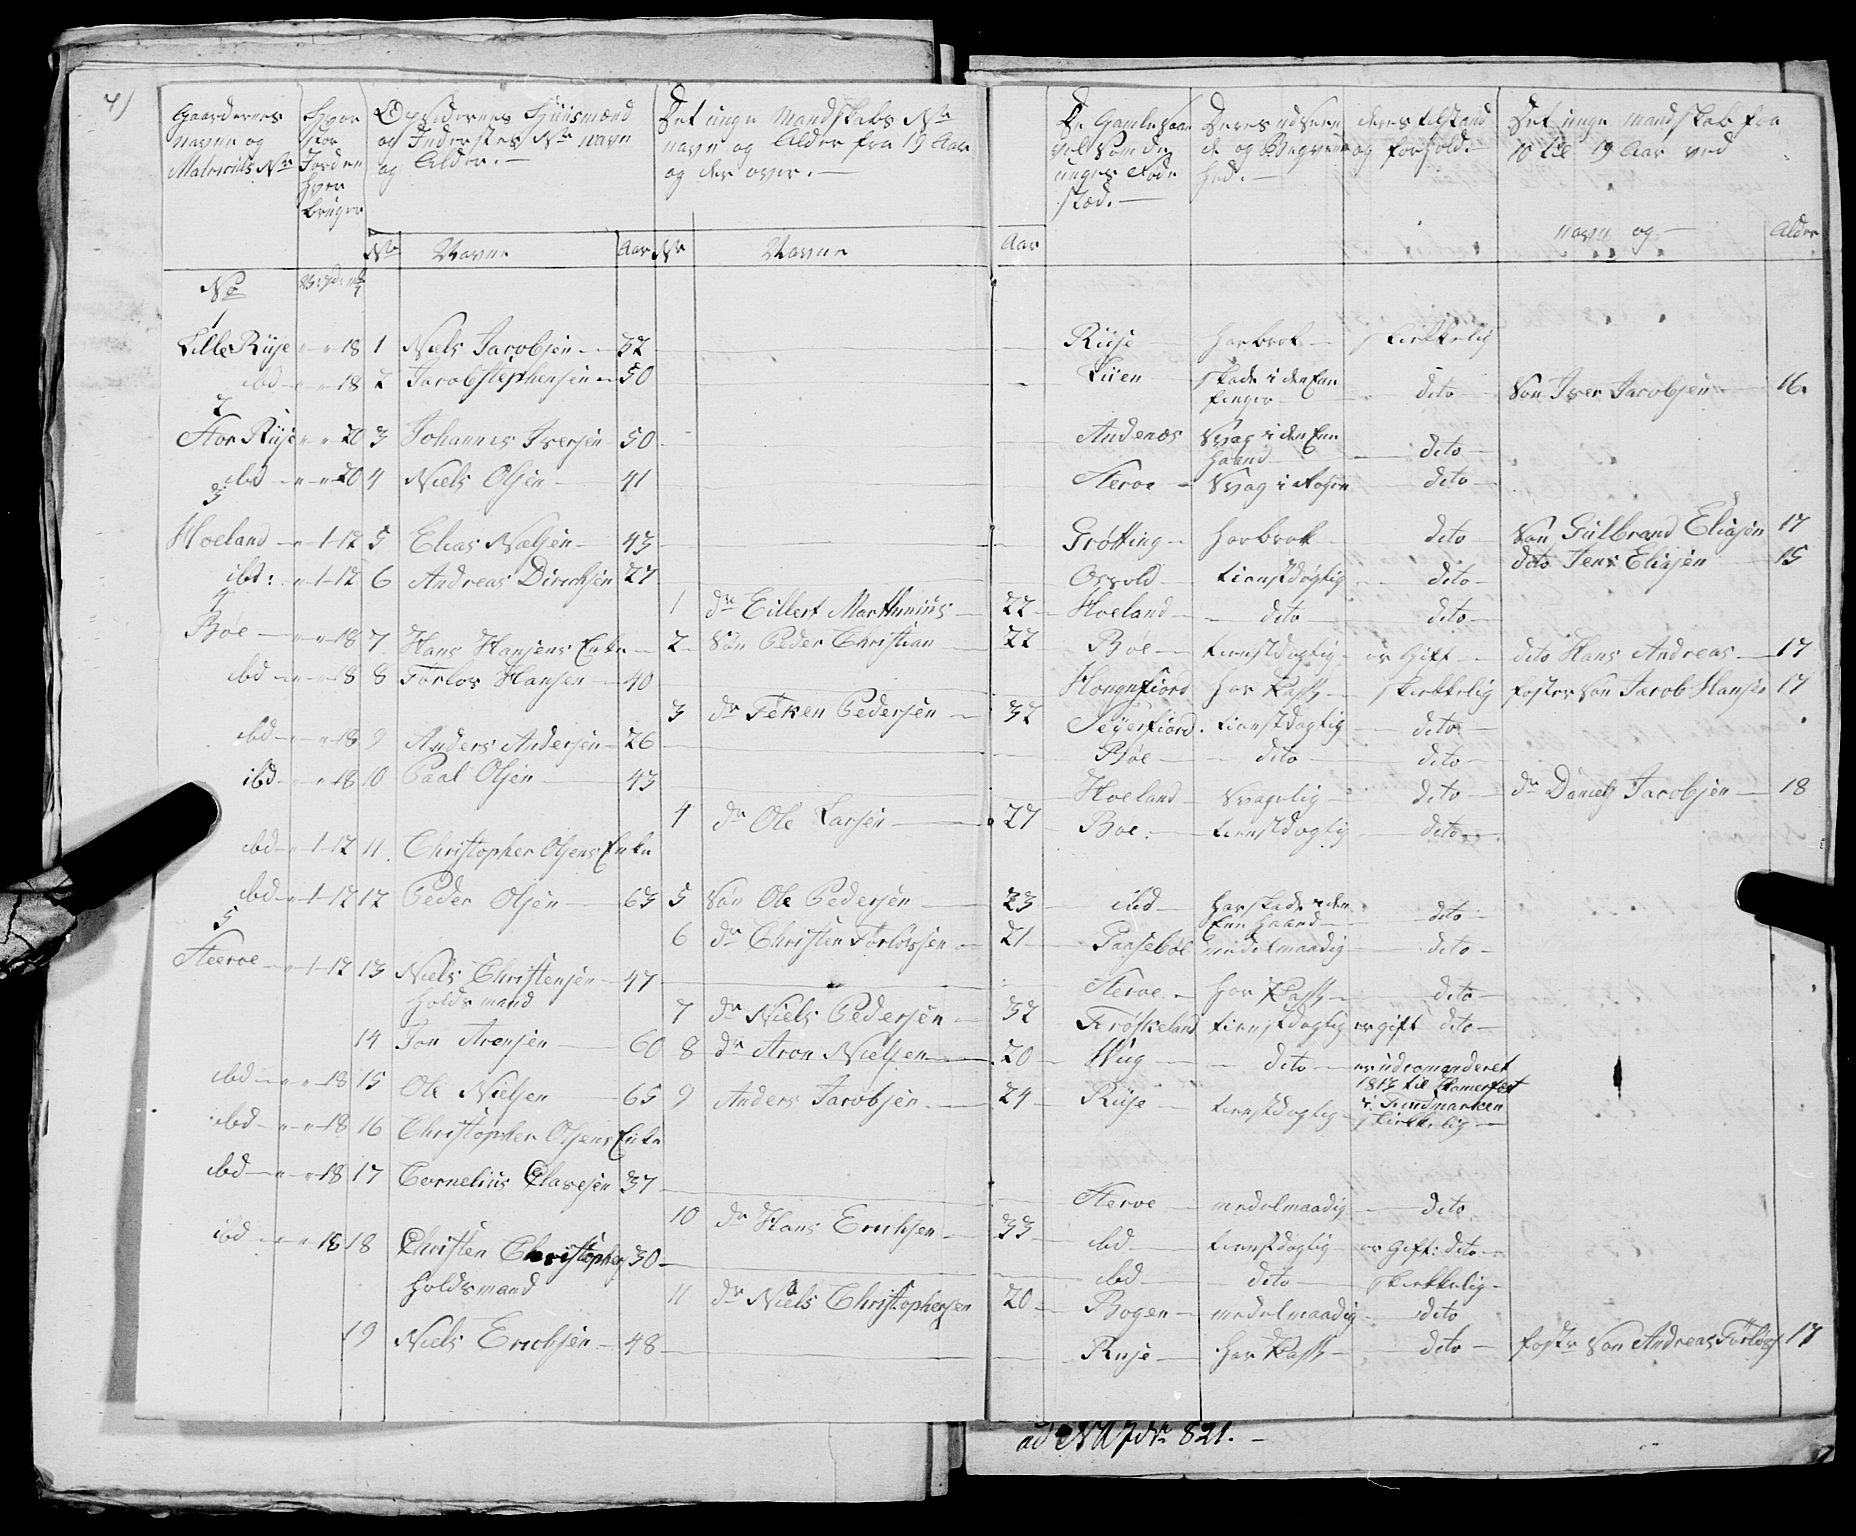 4)
Gaardernes navne og Matriculs No
Hvor stor Jorden hver bruger
Opsidernes Huusmænd og Inderstes No navn og Alder.
Det unge Mandskabs No navn og Alder fra 19 Aar og der over.
De Gamle saavel som de unges Føde stæd.
Deres udseende og Beqvemhed.
deres tilstand og forhold.
Det unge mandskab fra 10 til 19 Aar ved
No Navne Aar No Navne Aar navn og Alder
No
1
Lille Riise 18 1 Niels Jacobsen 32 Riise har brok skikkelig
ibd 18 2 Jacob Stephensen 50 skade i den Een finger dito Søn Iver Jacobsen 16
2
Stor Riise 20 3 Johannes Iversen 50 Andenæs Svag i den Een haand dito
ibd 20 4 Niels Olsen 41 Sterve Svag i dito
3
Hoeland 1-12 5 Elias Nielsen 43 Grøtting har brok dito Søn Gulbrand Eliasen 17
dito Jens Eliasen 15
ibd: 1-12 6 Andreas Dirichsen 27 Osvold tienstdygtig dito
1 dr Eillert Marthinius 22 Hoeland dito dito
4
Bøe 18 7 Hans Hansens Enke 2 Søn Peder Christian 22 Bøe tienstdygtig er Gift dito Hans Andreas 17
ibd 18 8 Torlos Hansen 40 Hognfiord har skikkelig foster Søn Jacob Hansen 17
3 dr Feken Pedersen 32 Seyerfiord tienstdygtig dito
ibd 18 9 Anders Andersen 26 Bøe dito dito
ibd 18 10 Paal Olsen 43 Hoeland Svagelig dito dr Daniel Jacobsen 18
4 dr Ole Larsen 27 Bøe tienstdygtig dito
ibd 1-12 11 Christopher Olsens Enke
ibd 1-12 12 Peder Olsen 63 5 Søn Ole Pedersen 23 ibd har skade i den Een haand dito
6 dr Christen Torlossen 21 medelmaadig dito
5
Steeroe 1-12 13 Niels Christensen holdsmand 47 Steroe har dito
7 dr Niels Pedersen 32 Frøskeland tienstdygtig er gift dito
14 Jon Aronsen 60 8 dr Aron Nielsen 20 dito er udcomanderet 1813 til Hamerfest i Findmarken
ibd 18 15 Ole Nielsen 65 9 Anders Jacobsen 24 Riise tienstdygtig skikkelig
ibd 18 16 Christopher Olsens Enke
ibd 18 17 Cornelius Clasesen 37 Steroe medelmaadig dito
10 dr Hans Erichsen 33 ibd tienstdygtig er Gift: dito
ibd 18 18 Christen Christophers 30 ibd dito skikkelig
holdsmand
11 dr Niels Christophersen 20 Bogen medelmaadig dito
19 Niels Ericksen 48 Riise har dito foster Søn Andreas Torlos 17
ad No 821.